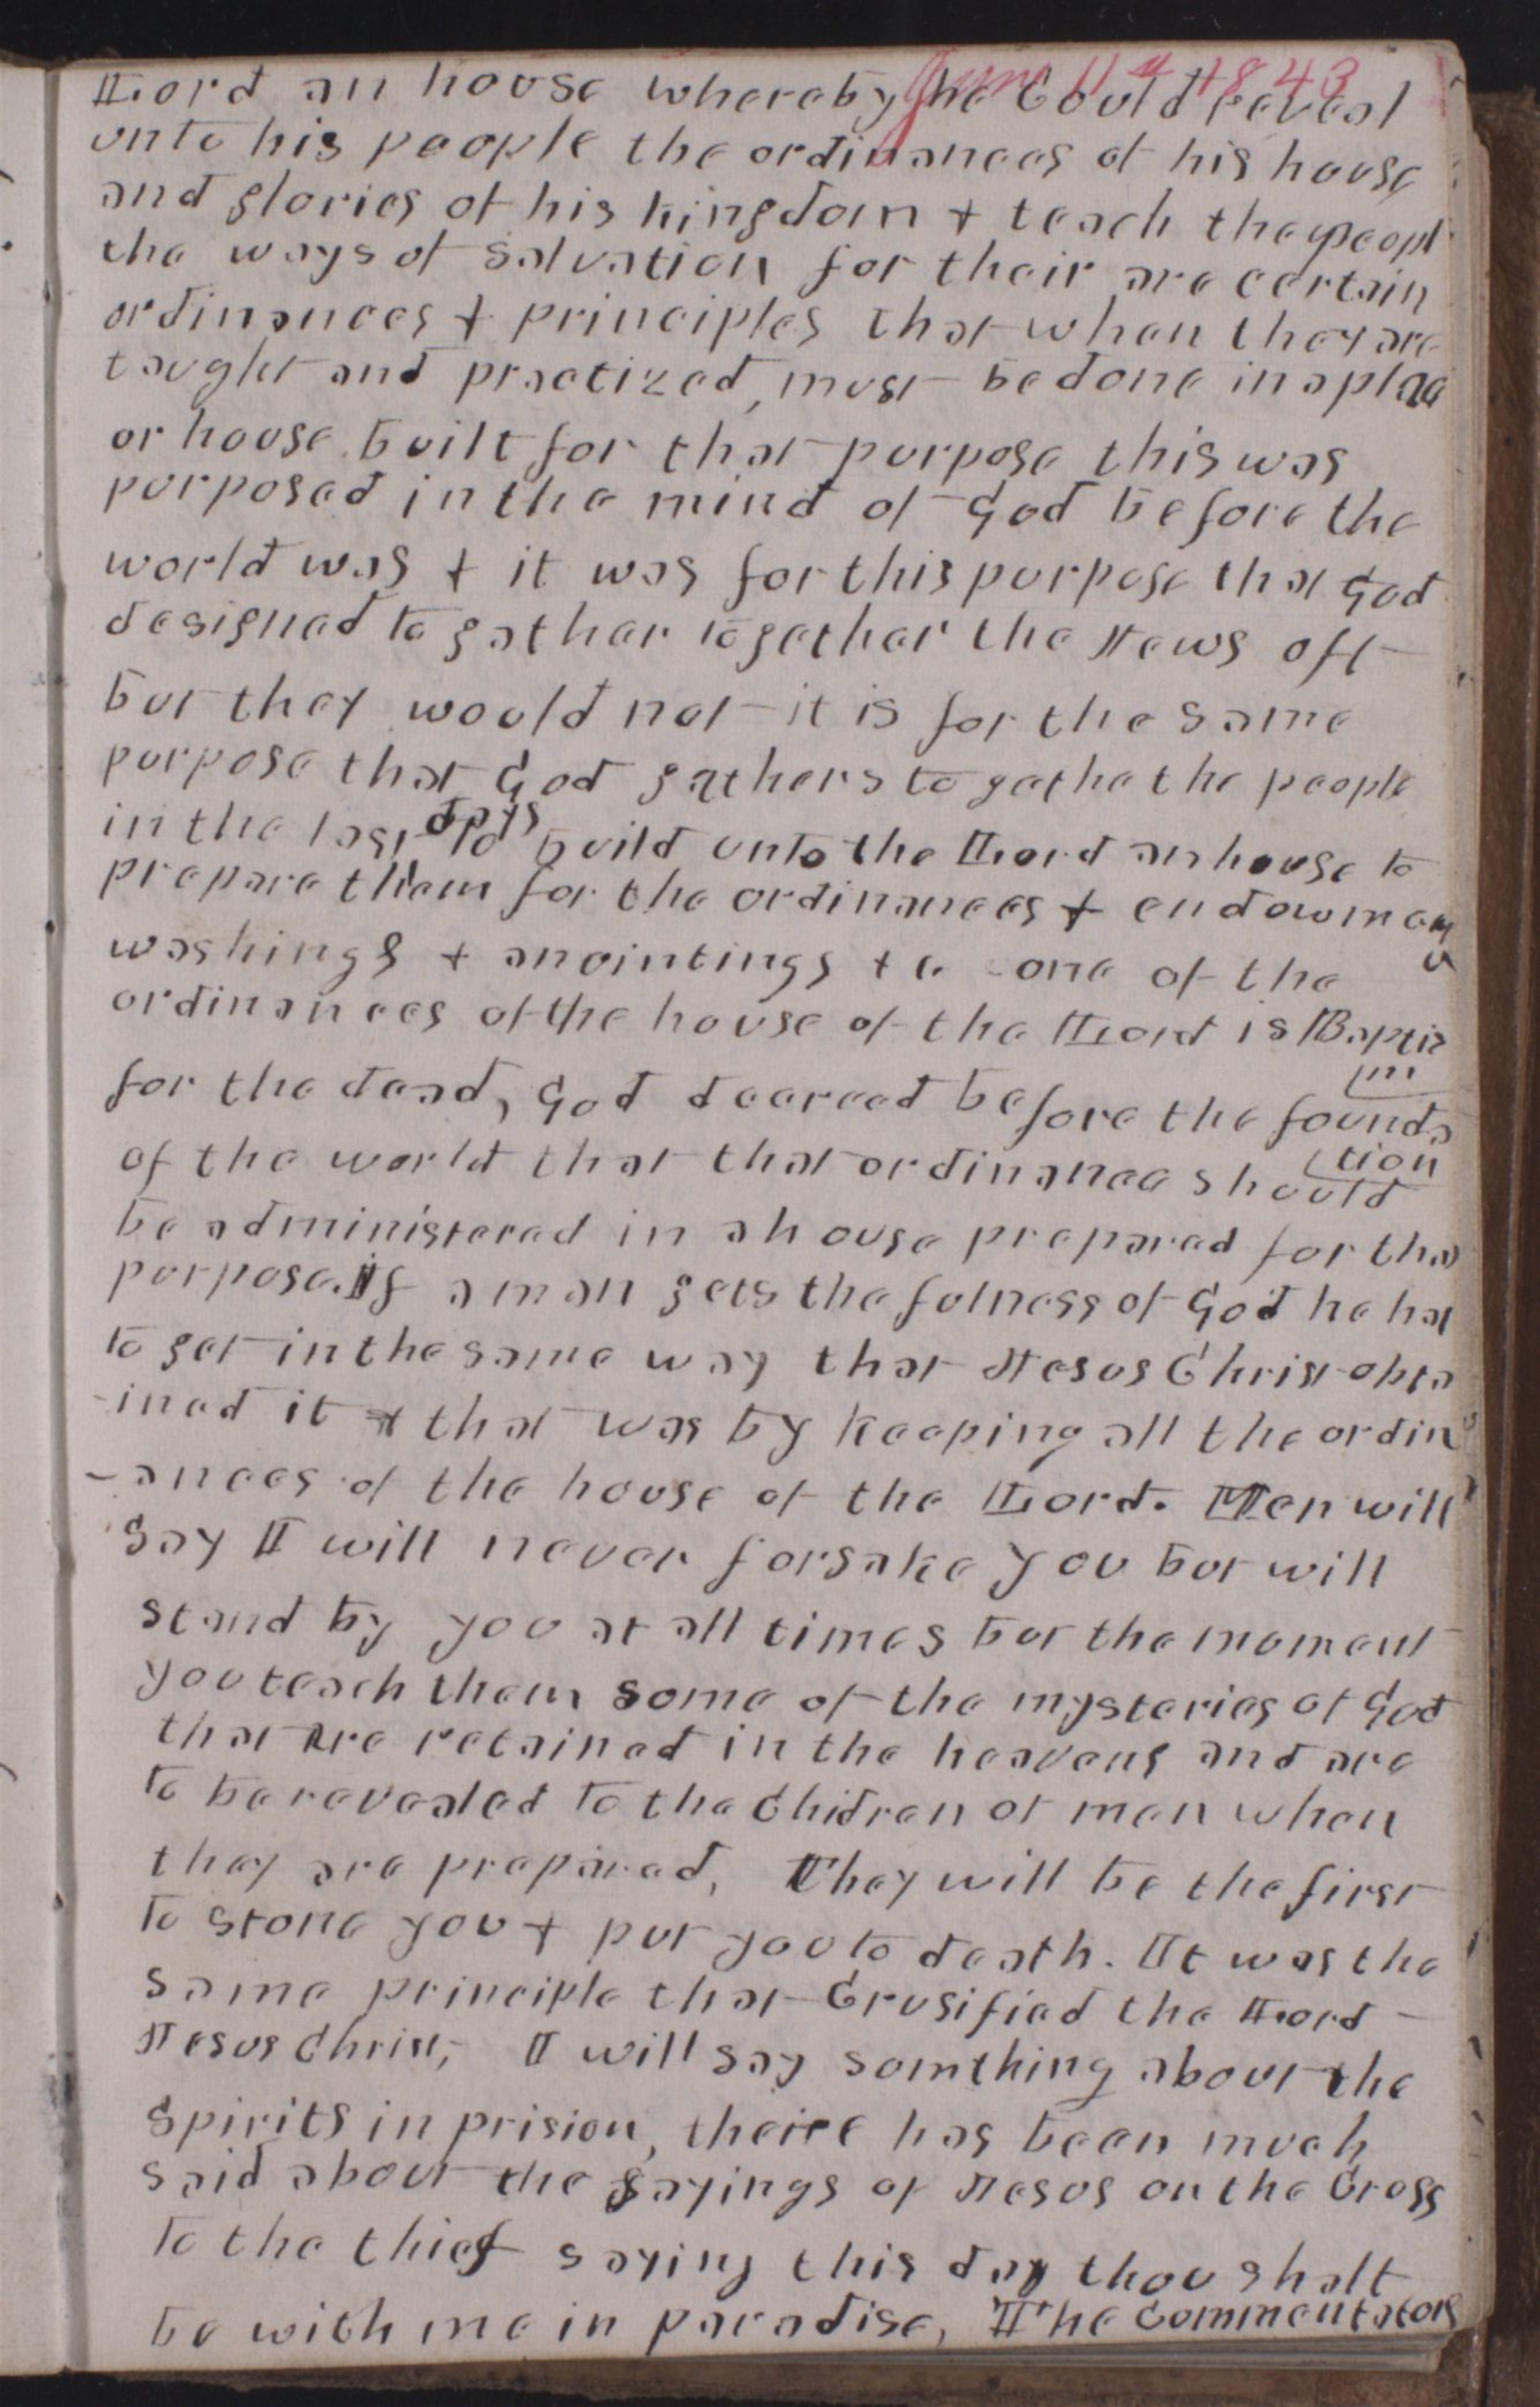 June 11th 1843
Lord an house whereby he Could reveal
unto his people the ordinances of his house
and glories of his kingdom & teach the peopl
the ways of salvation for their are certain
ordinances & principles that when they are
taught and practized, must be done in a place
or house built for that purpose this was
purposed in the mind of God before the
world was & it was for this purpose that God
designed to gather together the Jews oft
but they would not it is for the same
purpose that God gathers togethe the people
in the last days to build unto the Lord an house to
prepare them for the ordinances & endowmen
washings & anointings &c one of the
ordinances of the house of the Lord is Baptis
m
for the dead, God decreed before the founda
tion
of the world that that ordinance should
be administered in a house prepared for that
purpose. If a man gets the fulness of God he has
to get in the same way that Jesus Christ obta
-ined it & that was by keeping all the ordin
-ances of the house of the Lord. Men will
say I will never forsake you but will
stand by you at all times but the moment
you teach them some of the mysteries of God
that are retained in the heavens and are
to be revealed to the Chidren of men when
they are prepared, They will be the first
to stone you & put you to death. It was the
same principle that Crusified the Lord
Jesus Christ, I will say somthing about the
spirits in prision, theire has been much
said about the sayings of Jesus on the Cross
to the thief saying this day thou shalt
be with me in paradise, The Commentators